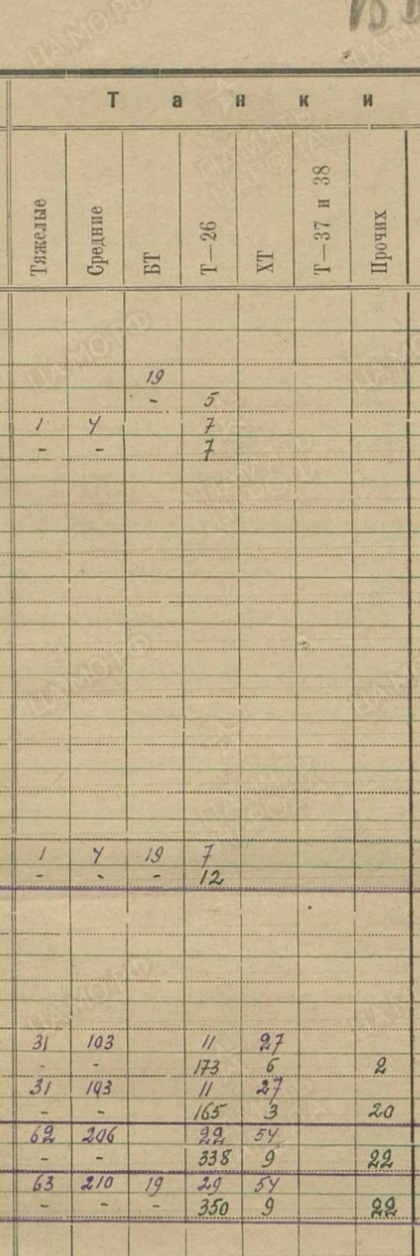 Танки
Тяжелые Средние БТ Т—26 ХТ Т—37 и 38 Прочих
19
- 5
1 4 7
- - 7
1 4 19 7
- - - 12
31 103 11 27
- - 173 6 2
31 103 11 27
- - 165 3 20
62 206 22 54
- - 338 9 22
63 210 19 29 54
- - - 350 9 22